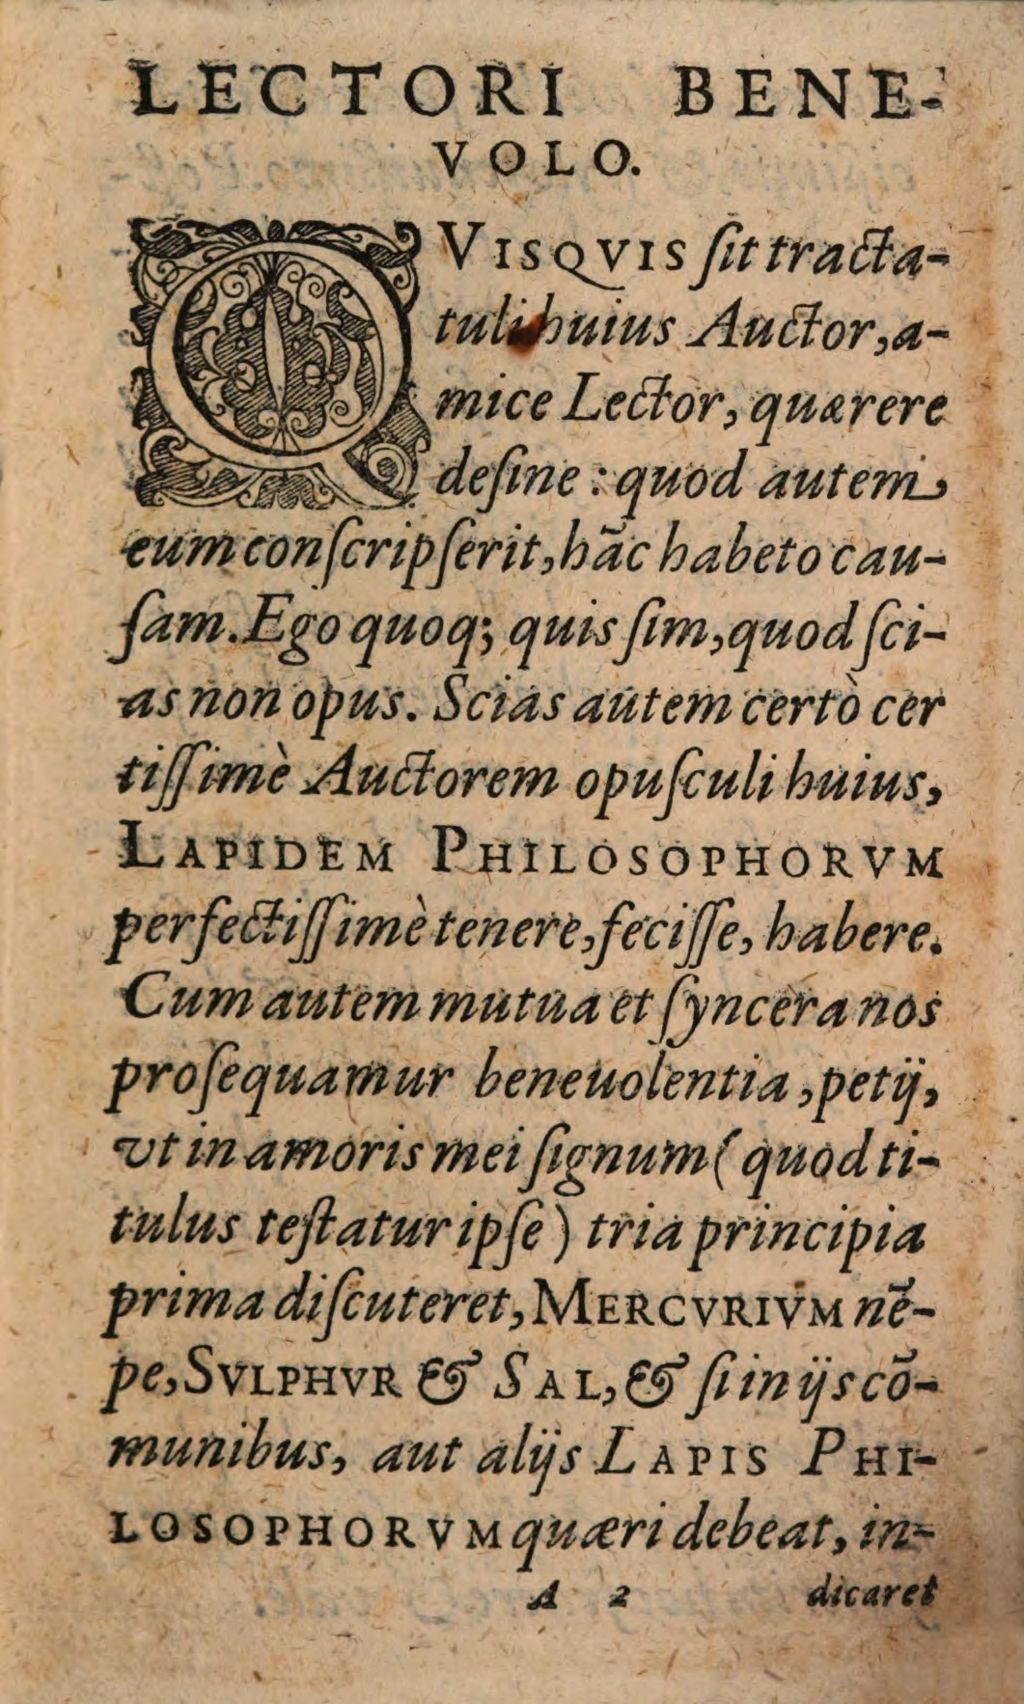 LECTORI BENE-
VOLO.
QVISQVIS ſit tracta-
tuli huius Auctor, a-
mice Lector, quærere
deſine: quod autem
eum conſcripſerit, hāc habeto cau-
ſam. Ego quoq; quis ſim, quod ſci-
as non opus. Scias autem certò cer
tiſſimè Auctorem opuſculi huius,
LAPIDEM PHILOSOPHORVM
perfectiſſimè tenere, feciſſe, habere.
Cum autem mutua et ſyncera nos
proſequamur beneuolentia, petij,
vt in amoris mei ſignum (quod ti-
tulus teſtatur ipſe) tria principia
prima diſcuteret, MERCVRIVM nē-
pe, SVLPHVR & SAL, & ſi in ijs cō-
munibus, aut alijs LAPIS PHI-
LOSOPHORVM quæri debeat, in-
A 2 dicaret